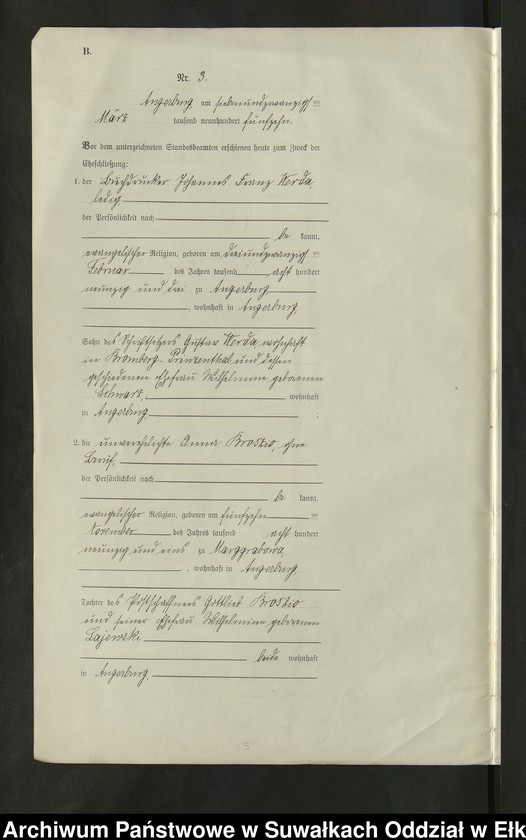 B.
Nr. 3.
Angerburg am siebenundzwanzigs=
März tausend neunhundert fünfzehn.
Vor dem unterzeichneten Standesbeamten erschienen heute zum Zweck der
Eheschließung:
1. der Buchdrucker Johannes Franz Werda,
ledig,
der Persönlichkeit nach
be kannt,
evangelischer Religion, geboren am dreiundzwanzigs=
Februar des Jahres tausend acht hundert
neunzig und drei zu Angerburg
, wohnhaft in Angerburg,
Sohn des Schriftsetzers Gustav Werda, wohnhaft
in Bromberg-Prinzenthal und dessen
geschiedenen Ehefrau Wilhelmine geborenen
wohnhaft
in Angerburg ;
2. die unverehelichte Anna Brostio, ohne
Beruf,
der Persönlichkeit nach
be kannt,
evangelischer Religion, geboren am fünfzehn=
November des Jahres tausend acht hundert
neunzig und eins zu Marggrabowa
, wohnhaft in Angerburg,
Tochter des Postschaffners Gottlieb Brostio
und seiner Ehefrau Wilhelmine geborenen
Lajewski
beide wohnhaft
in Angerburg,
Archiwum Państwowe w Suwałkach Oddział w Ełk